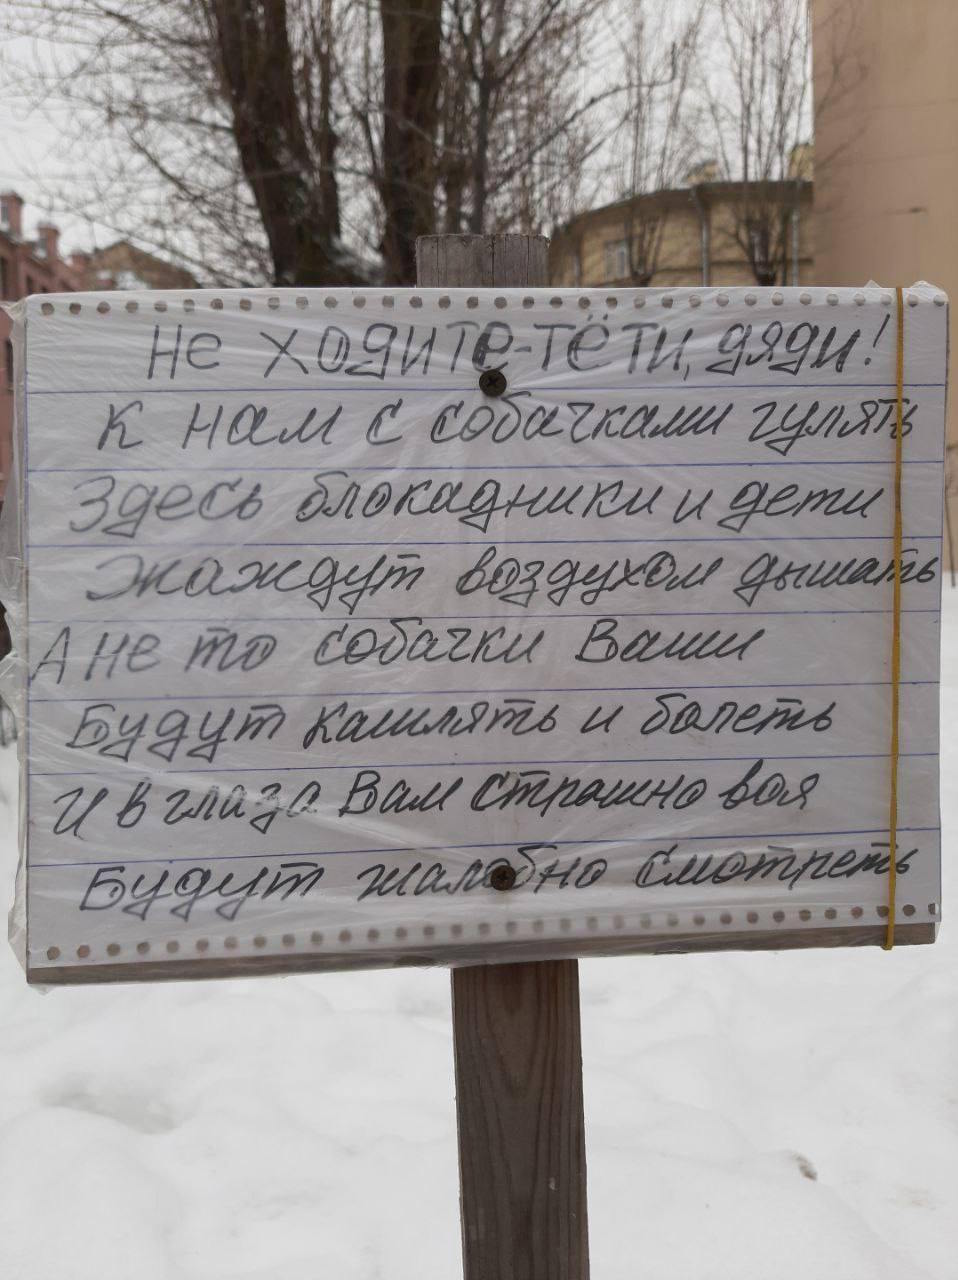 Не ходите-тёти, дяди!
к нам с собачками гулять
Здесь блокадники и дети
Жаждут воздухом дышать
А не то собачки Ваши
Будут кашлять и болеть
И в глаза Вам страшно воя
Будут жалобно смотреть